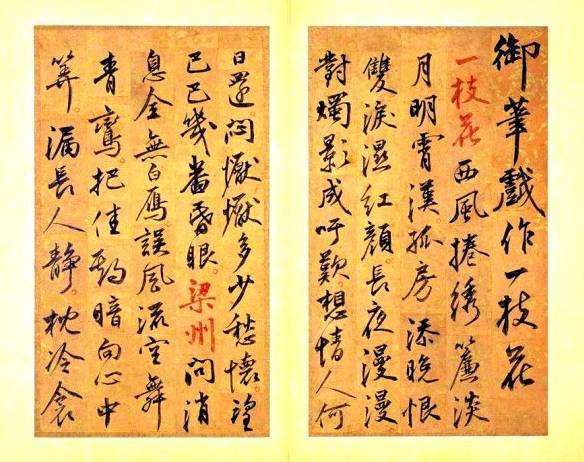 御筆戲作一枝花
一枝花 西風捲綉簾淡
月明霄漢孤房添晚恨
雙淚濕紅顏長夜漫漫
對燭影成吁歎。想情人何
日還悶懨懨多少愁懷。望
巴巴幾番昏眼。梁州 問消
息全無白雁。誤風流空舞
青鸞把佳期暗向心中
筭漏長人靜。枕冷衾